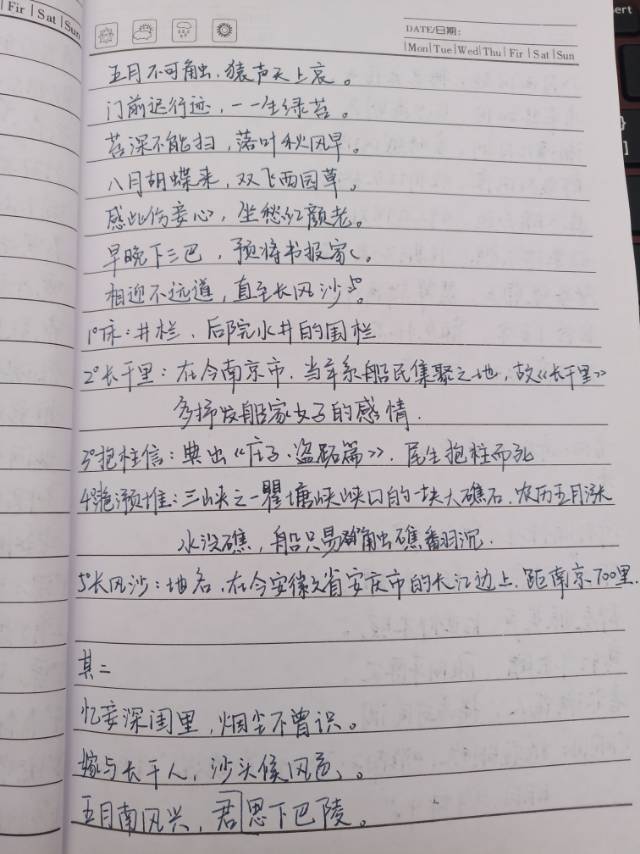 Fir Sat Sun
ert
DATE/日期:
Mon Tue Wed Thu Fir Sat Sun
五月不可触，猿声天上哀。
门前迟行迹，一一生绿苔。
苔深不能扫，落叶秋风早。
八月胡蝶来，双飞西园草。
感此伤妾心，坐愁红颜老。
早晚下三巴，预将书报家。
相迎不远道，直至长风沙5°。
1°床：井栏，后院水井的围栏
2°长干里：在今南京市，当年系船民集聚之地，故《长干里》
多抒发船家女子的感情.
3°抱柱信：典出《庄子·盗跖篇》，尾生抱柱而死
4°滟滪堆：三峡之一瞿塘峡峡口的一块大礁石，农历五月涨
水没礁，船只易触礁翻沉.
5°长风沙：地名，在今安徽省安庆市的长江边上，距南京700里.
其二
忆妾深闺里，烟尘不曾识。
嫁与长干人，沙头候风色。
五月南风兴，君思下巴陵。